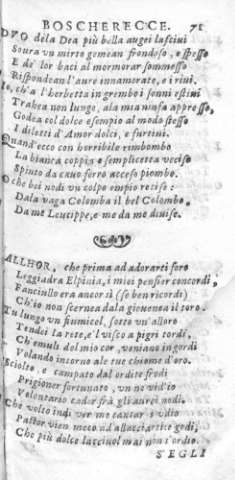 BOSCHERECCE. 71
DVO della Dea più bella augei lasciui
Soura vn mirto gemean frondoso, e spesso
E de' lor baci al mormorar sommesso
Rispondean l'aure innamorate, e i riui.
Io, ch'a l'herbetta in grembo i sonni estiui
Trahea non lungo, ala mia ninfa appresso,
Godea col dolce esempio al modo stesso
I diletti d'Amor dolci, e furtiui.
Quand'ecco con horribile rimbombo
La bianca coppia e semplicetta vccise
Spinto da cauo ferro acceso piombo.
O che bei nodi vn colpo empio recise:
Dala vaga Colomba il bel Colombo,
Da me Leucippe, e me da me diuise.
ALLHOR, che prima ad adorarei foro
Leggiadra Elpinia, i miei pensier concordi,
Fanciullo era ancor il (se ben ricordi)
Ch'io non scernea dala giouenca il toro.
Tu lungo vn fiumicel, sotto vn'alloro
Tendei la rete, e'l visco a pigri tordi,
Ch'emuli del mio cor, veniano ingordi
Volando intorno ale tue chiome d'oro.
Sciolto, e campato dal ordite frodi
Prigioner fortunato, vn ne vid'io
Volontario cader frà gli aurei nodi.
Che volto indi ver me cantar s'vdio
Pastor vien meco ad allacciarti e godi,
Che più dolce lacciuol mai non s'ordio.
SEGLI